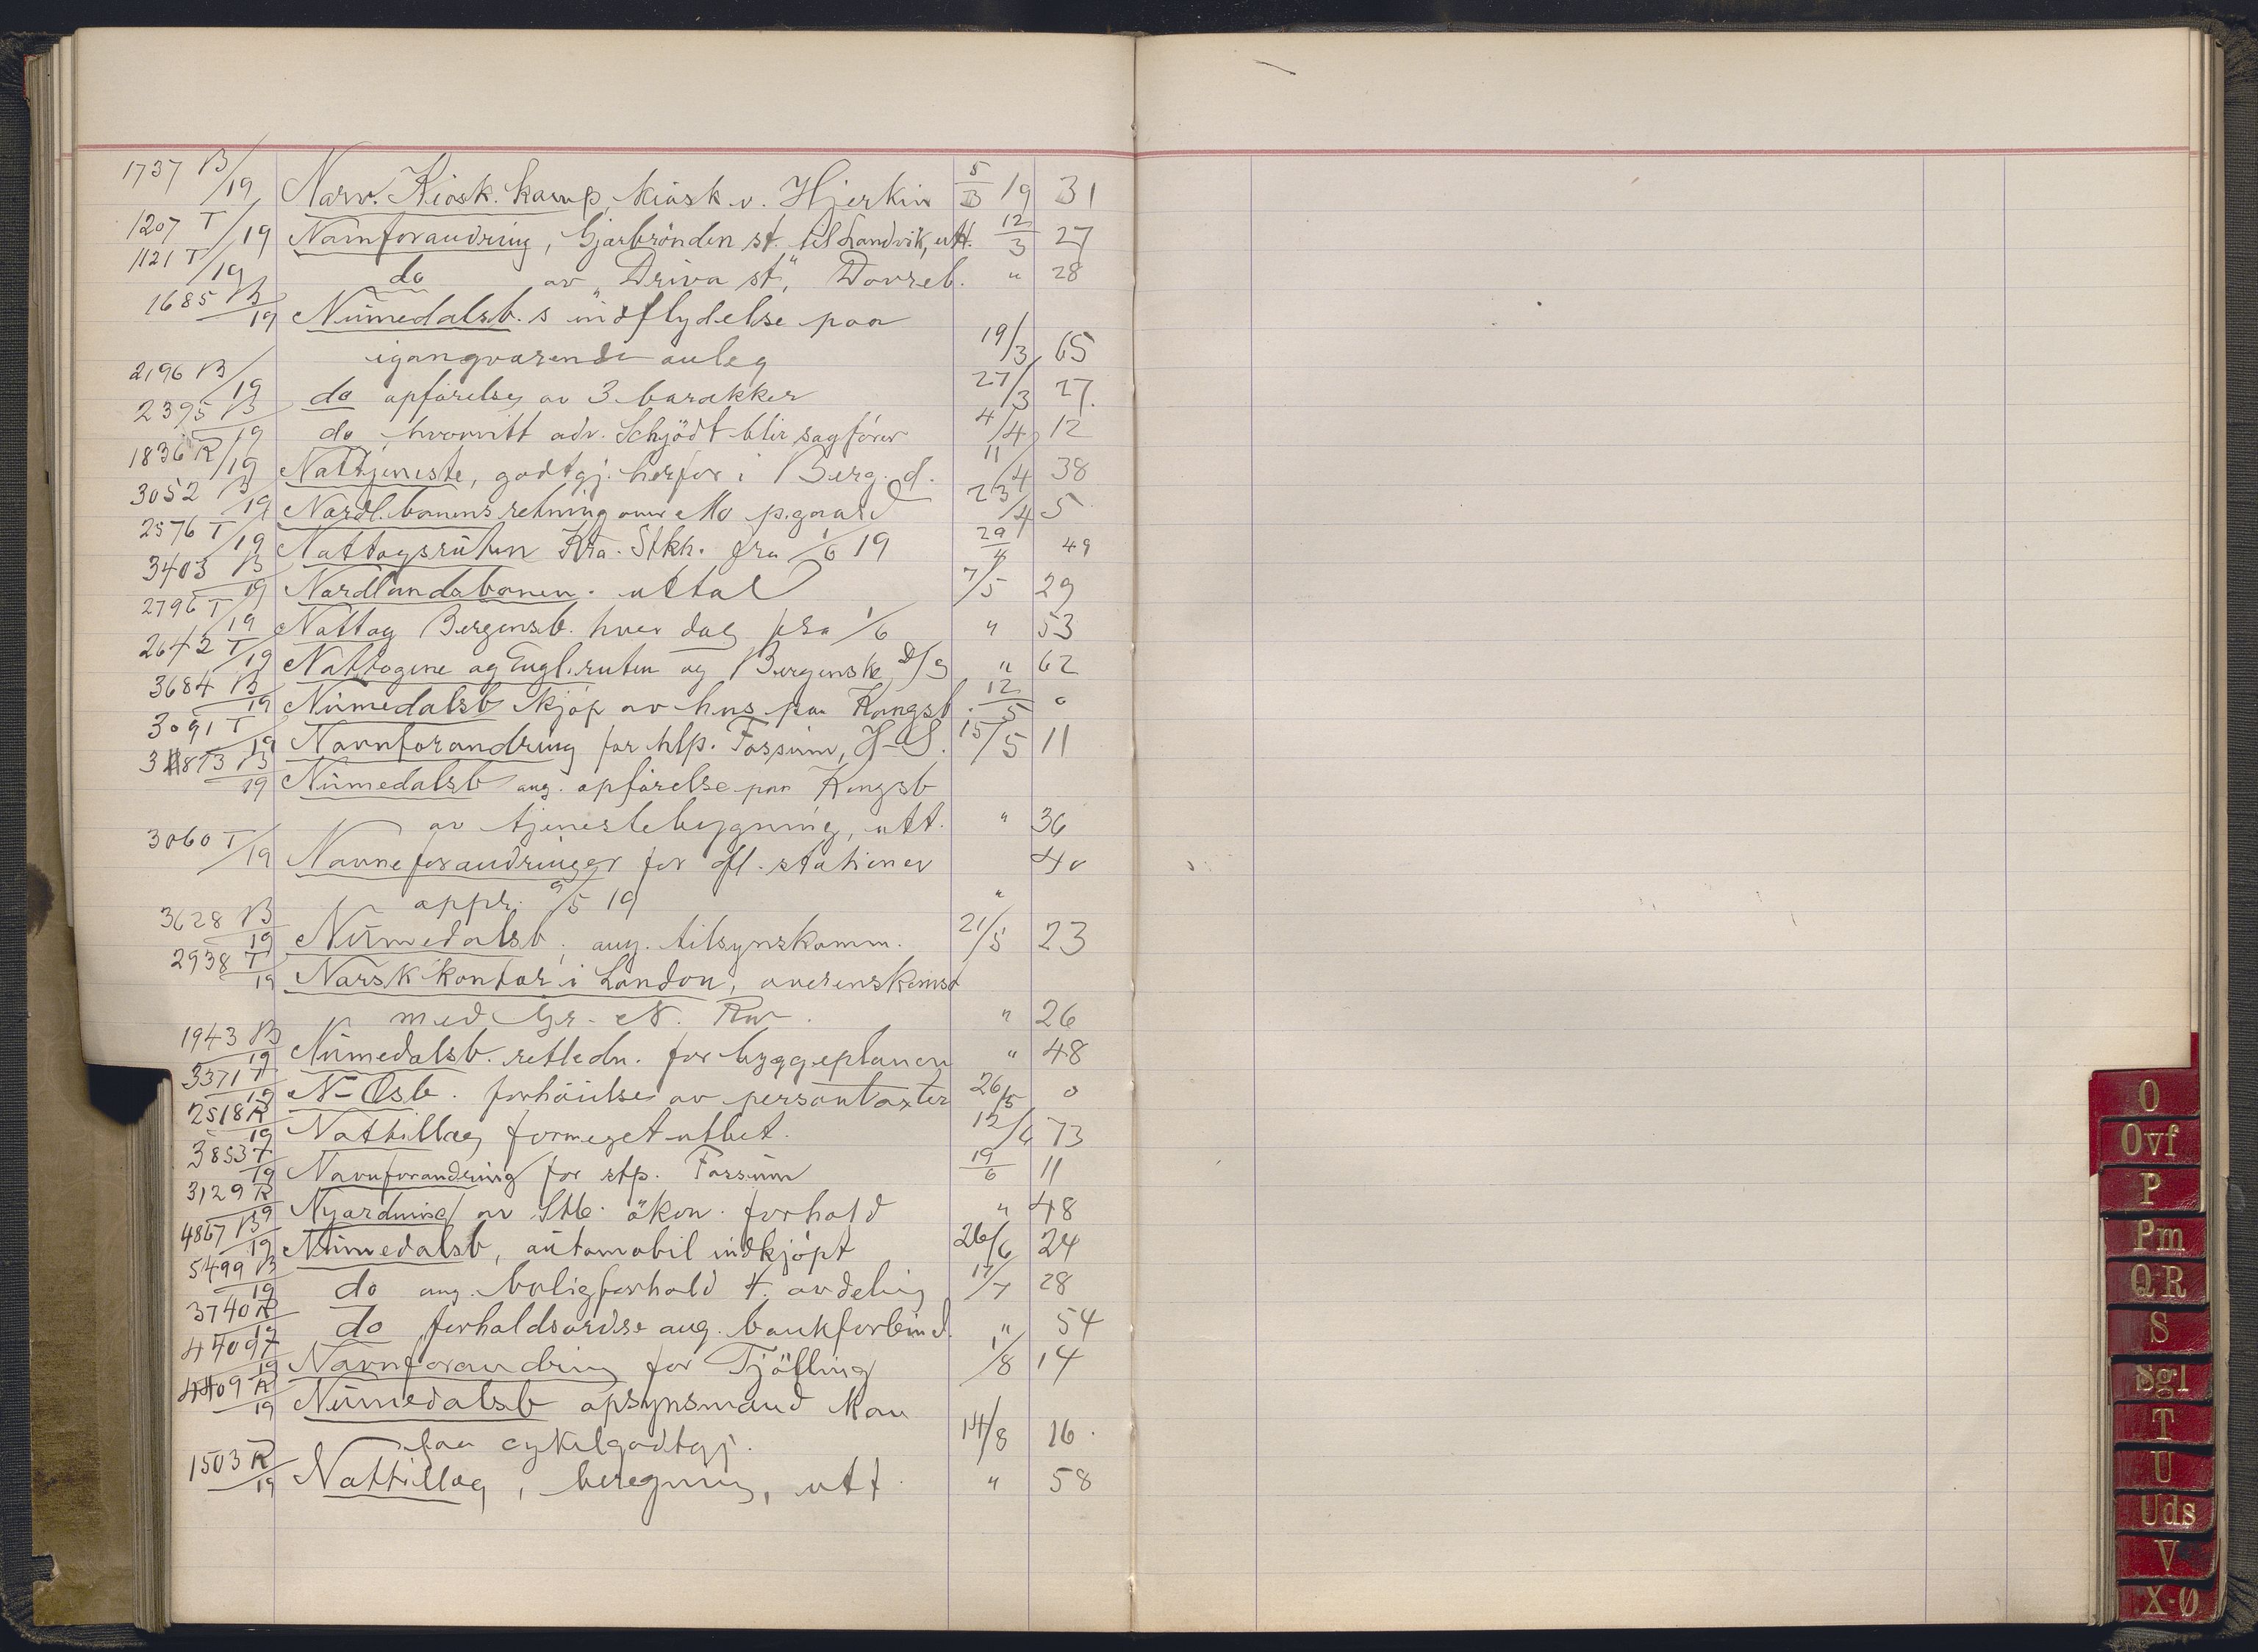 1737 B/19 Narv. Kiosk. komp. kiosk v. Hjerkin 5/3 19 31
1207 T/19 Navnforandring, Gjærbrönden st. til Landvik, utt. 12/3 27
1121 T/19 do av "Driva st." Dovreb. " 28
1685 B/19 Numedalsb.s indflydelse paa
igangværende anleg 19/3 65
2196 B/19 do opförelse av 3 barakker 27/3 27.
2395 B/19 do hvorvitt adv. Schjödt blir sagförer 4/4 12
1836 R/19 Nattjeneste, godtgj. herfor i Berg. d. 11/4 38
3052 B/19 Nordl.banens retning over Mo p.gaard 23/4 5
2576 T/19 Nattogsruten Kra. Stkh. fra 1/6 19 29/4 49
3403 B/19 Nordlandsbanen. uttal 7/5 29
2796 T/19 Nattog Bergensb. hver dag fra 1/6 " 53
2642 T/19 Nattogene og Engl.ruten og Bergenske D/S " 62
3684 B/19 Numedalsb kjöp av hus paa Kongsb. 12/5 0
3091 T/19 Navnforandring for hlp. Fossum, 15/5 11
3873 B/19 Numedalsb ang. opförelse paa Kongsb
av tjenestebygning, utt. " 36
3060 T/19 Navneforandringer for fl. stationer 40
appr. 9/5 19 "
3628 B/19 Numedalsb. ang. tilsynskomm. 21/5 23
2938 T/19 Norsk kontor i London, overenskomst
med Gr. N. Rw. " 26
1943 B/19 Numedalsb. retledn. for byggeplanen " 48
3371 T/19 N-Ösb. forhöielse av persontaxter 26/5 0
2518 R/19 Nattillæg formeget utbet. 12/6 73
3853 T/19 Navnforandring for stp. Fossum 19/6 11
3129 R/19 Nyordning av Stb. ökon. forhold " 48
4867 B/19 Numedalsb, automobil indkjöpt 26/6 24
5499 B/19 do ang. boligforhold 4. avdeling 17/7 28
3740 R/19 do forholdsordre ang. bankforbind. " 54
4409 T/19 Navnforandring for Tjölling 1/8 14
4409 R/19 Numedalsb opsynsmand kan
faa cykelgodtgj. 14/8 16.
1503 R/19 Nattillæg, beregning, utt. " 58
O
Ovf
P
Pm
QR
S
Sgl
T
U
Uds
V
X-Ø